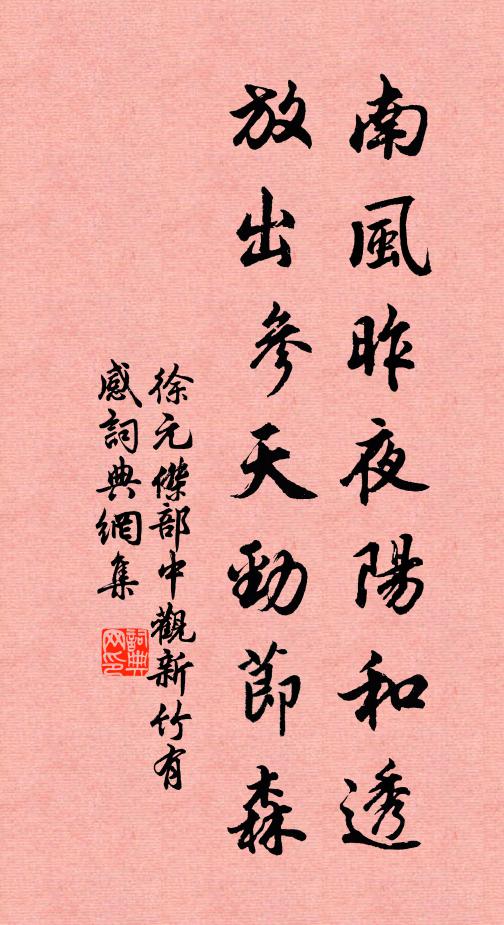 南風昨夜陽和透
放出參天勁節森
徐元傑部中觀新竹有
感詞典網集
詞典网印